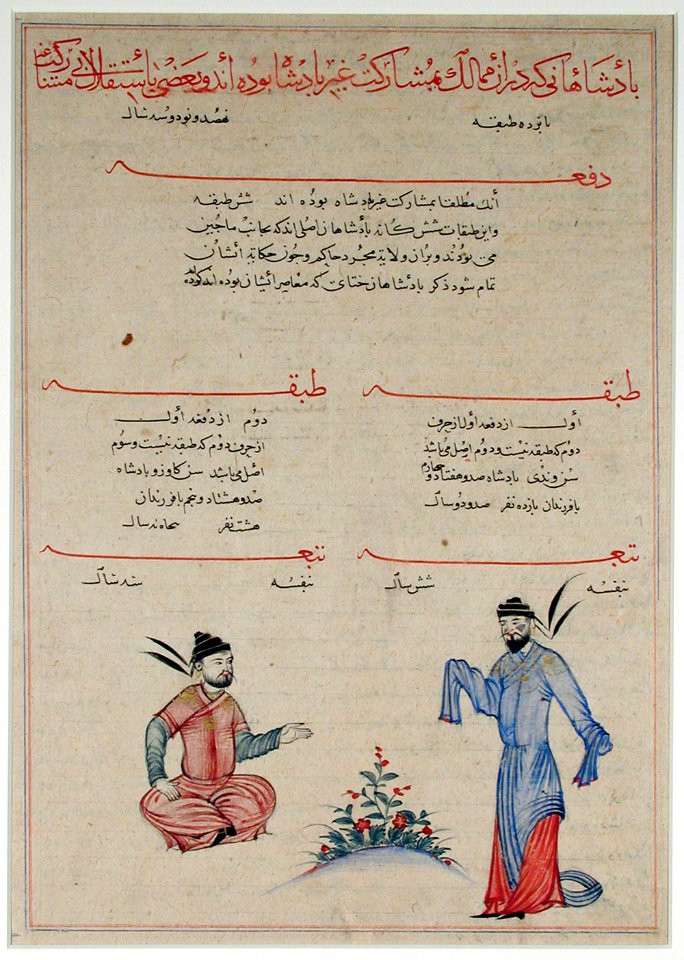 بادشاهانی که در از ممالک بمشارکت غیر بادشاه بوده اند و بعضی باستقلال بی مشارکت
بانزده طبقه نهصد و نود و سه سال
دفعه
آنک مطلقا بمشارکت غیر بادشاه بوده اند شش طبقه
و این طبقات شش کانه بادشاهان اصلی اند که بجانب ماجین
می بوده اند و بران ولایة مجرد حاکم و جون حکایة ایشان
تمام شود ذکر بادشاهان ختای که معاصر ایشان بوده اند
طبقه
اول از دفعه اول از حرف
دوم که طبقه بیست و دوم اصل می باشد
بادشاه صد و هفتاد و چهارم
با فرزندان یازده نفر صد و دو سال
طبقه
دوم از دفعه اول
از حرف دوم که طبقه بیست و سوم
اصل می باشد بادشاه
صد و هشتاد و پنجم با فرزندان
هشت نفر سال
بنفسه شش سال
بنفسه سال